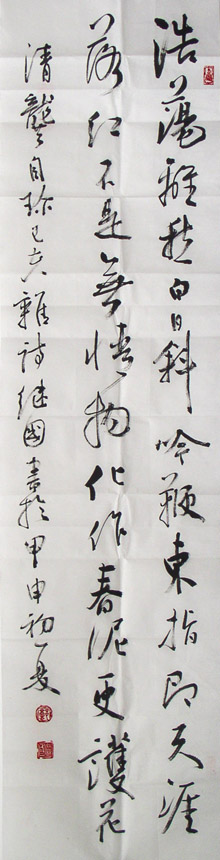 浩蕩離愁白日斜吟鞭東指即天涯
落紅不是無情物化作春泥更護花
清龔自珍己亥雜詩继國書於甲申初夏